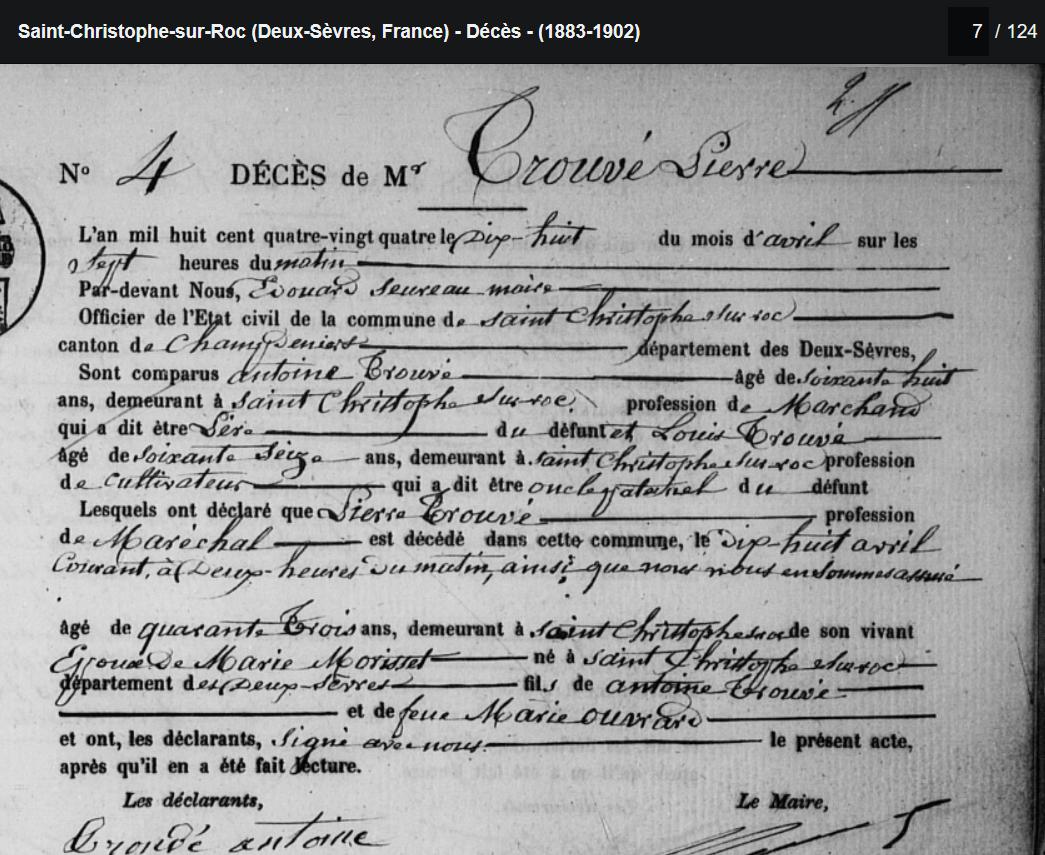 Saint-Christophe-sur-Roc (Deux-Sèvres, France) - Décès - (1883-1902) 7 / 124
No 4 DÉCÈS de Mr Trouvé Pierre
L'an mil huit cent quatre-vingt quatre le Dix-huit du mois d'avril sur les
Sept heures du matin
Par-devant Nous, Edouard Seureau maire
Officier de l'Etat civil de la commune de Saint Christophe sur roc
canton de Champdeniers département des Deux-Sèvres,
Sont comparus antoine Trouvé âgé de soixante huit
ans, demeurant à Saint Christophe sur-roc, profession de Marchand
qui a dit être Père du défunt et Louis Trouvé
âgé de soixante Seize ans, demeurant à Saint Christophe sur roc profession
de Cultivateur qui a dit être oncle paternel du défunt
Lesquels ont déclaré que Pierre Trouvé profession
de Maréchal est décédé dans cette commune, le Dix-huit avril
Courant, à Deux-heures du matin, ainsi que nous nous en sommes assuré
âgé de quarante Trois ans, demeurant à Saint Christophe s roc de son vivant
Epoux De Marie Morisset né à Saint Christophe sur-roc
département des Deux-Sèvres fils de antoine Trouvé
et de feue Marie ouvrard
et ont, les déclarants, Signé avec nous le présent acte,
après qu'il en a été fait lecture.
Les déclarants, Le Maire,
Trouvé antoine